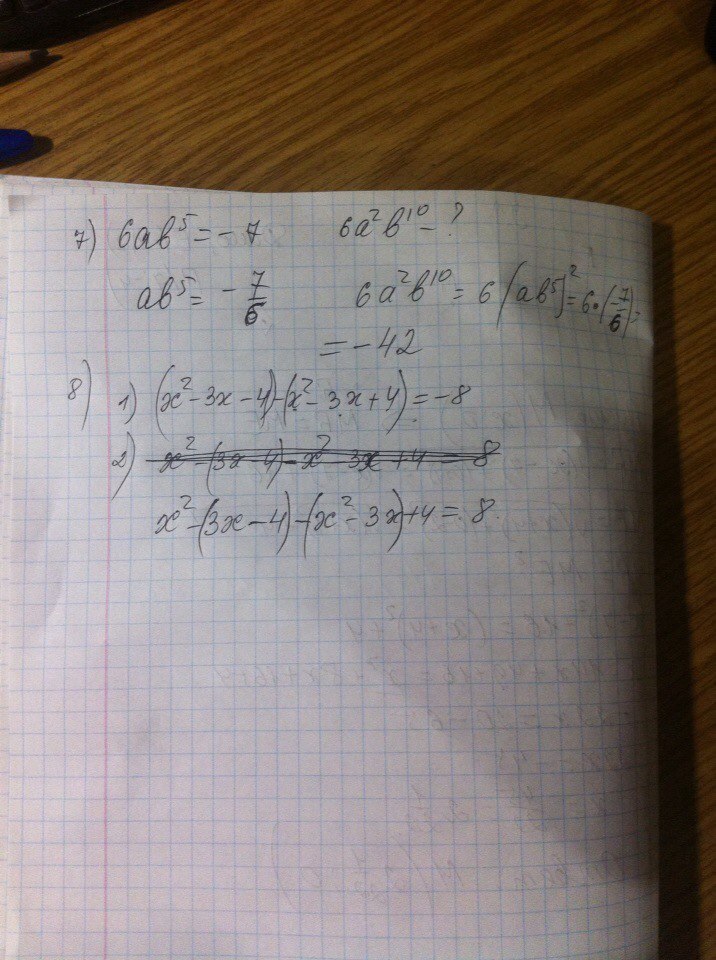 7) 6ab⁵ = -7 6a²b¹⁰ - ?
ab⁵ = -7/6 6a²b¹⁰ = 6(ab⁵)² = 6·(-7/6)²
= -42
8) 1) (x² - 3x - 4) - (x² - 3x + 4) = -8
2) x² - (3x - 4) - x² - 3x + 4 = 8
x² - (3x - 4) - (x² - 3x) + 4 = 8